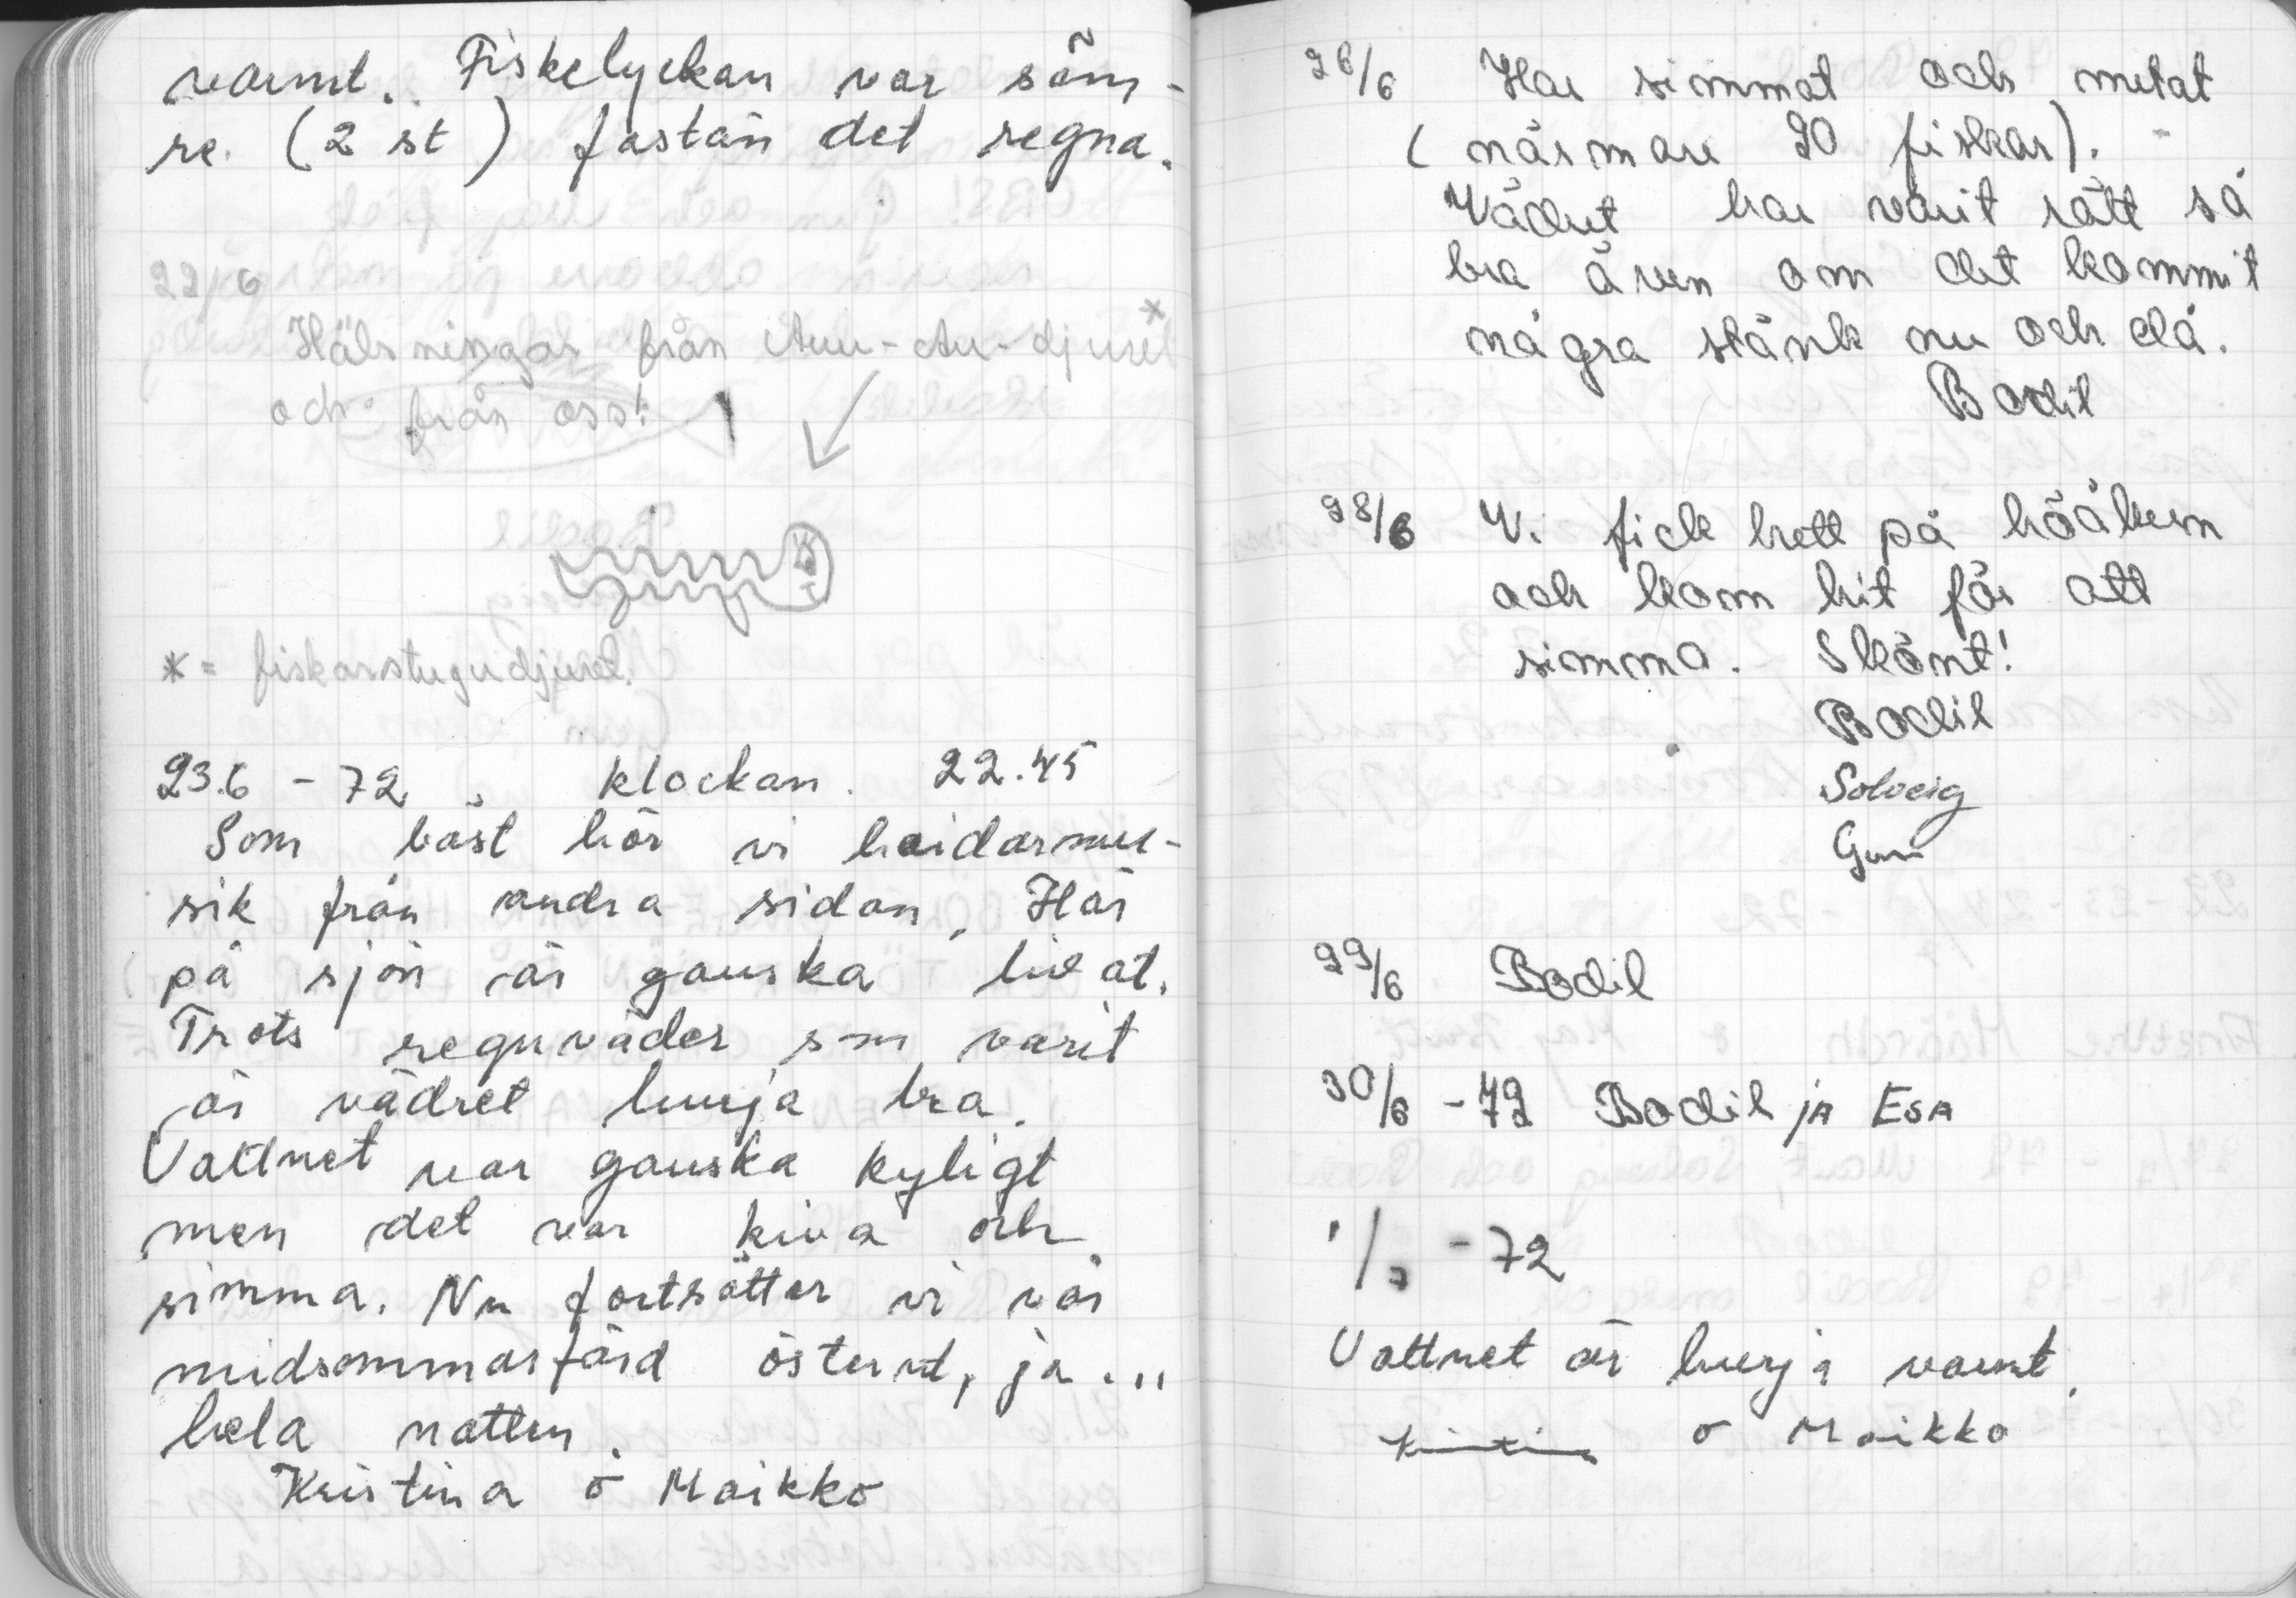 varmt. Fiskelyckan var säm-
re (2 st) fastän det regna.
22/6
Hälsningar från Auu-Au-djuret *
och från oss!
* = fiskarstugudjuret.
23.6 - 72. klockan. 22.45
Som bäst hör vi haidarmu-
sik från andra sidan. Här
på sjön är ganska livat.
Trots regnväder som varit
är vädret hurja bra.
Vattnet var ganska kyligt
men det var kiva och
simma. Nu fortsätter vi vår
midsommarfärd österut, ja...
hela natten.
Kristina o Maikko
26/6 Har simmat och metat
(närmare 20 fiskar).
Vädret har varit rätt så
bra även om det kommit
några stänk nu och då.
Bodil
28/6 Vi fick hett på höåkern
och kom hit för att
simma. Skönt!
Bodil
Solveig
Gun
29/6 Bodil
30/6 - 72 Bodil ja Esa
1/7 - 72
Vattnet är hurja varmt.
Kristina o Maikko